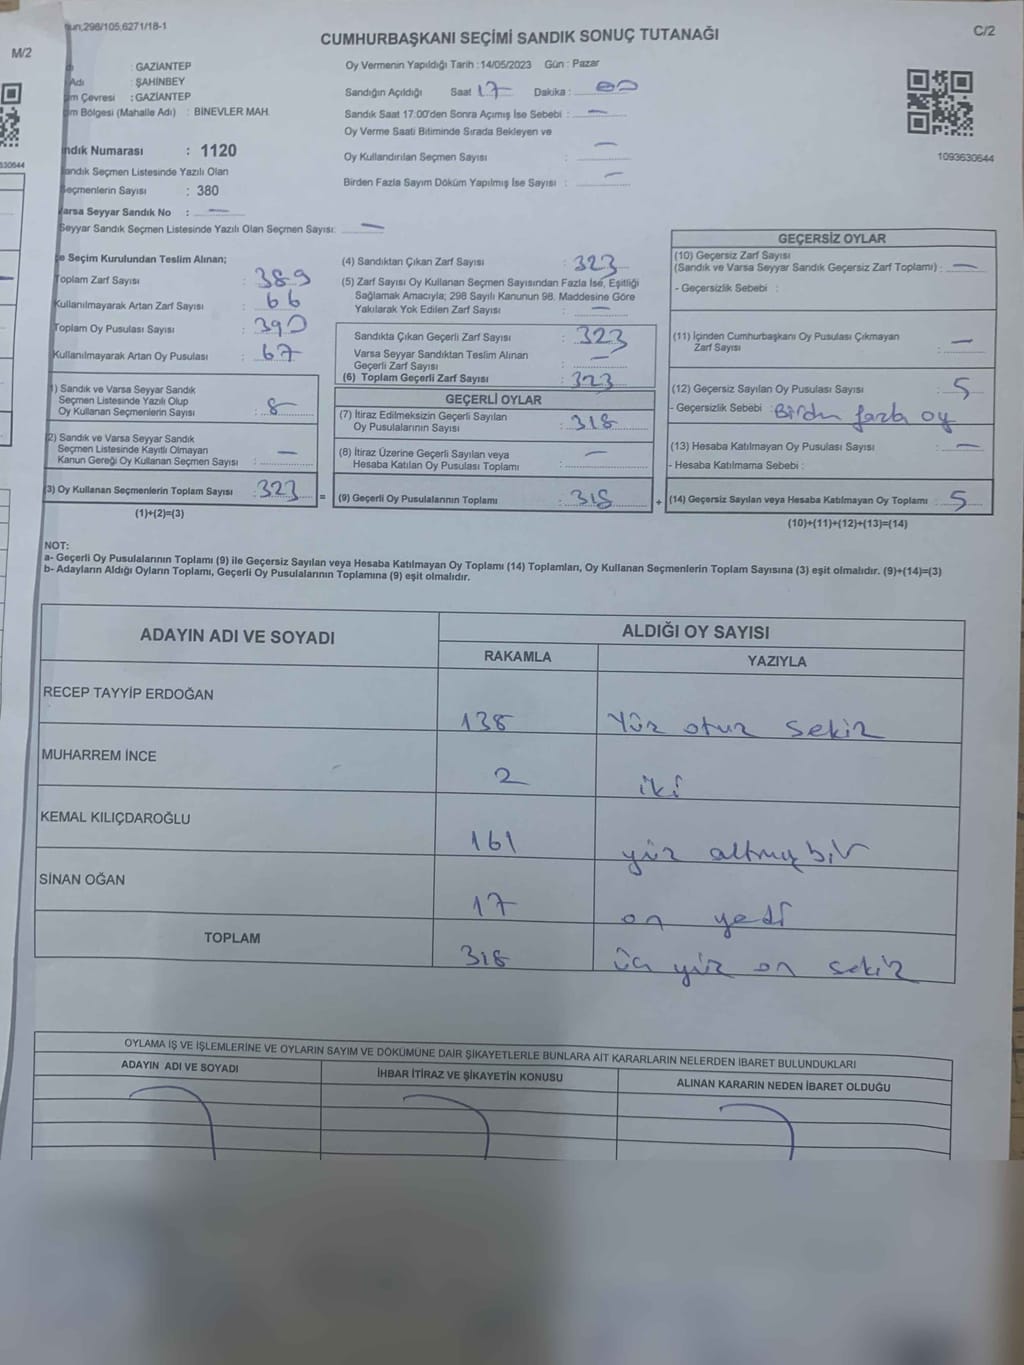 M/2
298/105,6271/18-1
CUMHURBAŞKANI SEÇİMİ SANDIK SONUÇ TUTANAĞI
C/2
: GAZİANTEP
Adı : ŞAHİNBEY
Çevresi : GAZİANTEP
Bölgesi (Mahalle Adı) : BİNEVLER MAH.
Oy Vermenin Yapıldığı Tarih :14/05/2023 Gün : Pazar
Sandığın Açıldığı Saat 17 Dakika : 00
Sandık Saat 17:00'den Sonra Açımış İse Sebebi : —
Oy Verme Saati Bitiminde Sırada Bekleyen ve
Oy Kullandırılan Seçmen Sayısı : —
Birden Fazla Sayım Döküm Yapılmış İse Sayısı : —
1093630644
630644
ndık Numarası : 1120
andık Seçmen Listesinde Yazılı Olan
Seçmenlerin Sayısı : 380
Varsa Seyyar Sandık No : —
Seyyar Sandık Seçmen Listesinde Yazılı Olan Seçmen Sayısı: —
e Seçim Kurulundan Teslim Alınan;
Toplam Zarf Sayısı : 389
Kullanılmayarak Artan Zarf Sayısı : 66
Toplam Oy Pusulası Sayısı : 390
Kullanılmayarak Artan Oy Pusulası : 67
1) Sandık ve Varsa Seyyar Sandık
Seçmen Listesinde Yazılı Olup
Oy Kullanan Seçmenlerin Sayısı : 8
2) Sandık ve Varsa Seyyar Sandık
Seçmen Listesinde Kayıtlı Olmayan
Kanun Gereği Oy Kullanan Seçmen Sayısı : —
3) Oy Kullanan Seçmenlerin Toplam Sayısı : 323 =
(1)+(2)=(3)
(4) Sandıktan Çıkan Zarf Sayısı : 323
(5) Zarf Sayısı Oy Kullanan Seçmen Sayısından Fazla İse, Eşitliği
Sağlamak Amacıyla; 298 Sayılı Kanunun 98. Maddesine Göre
Yakılarak Yok Edilen Zarf Sayısı : —
Sandıkta Çıkan Geçerli Zarf Sayısı : 323
Varsa Seyyar Sandıktan Teslim Alınan
Geçerli Zarf Sayısı : —
(6) Toplam Geçerli Zarf Sayısı : 323
GEÇERLİ OYLAR
(7) İtiraz Edilmeksizin Geçerli Sayılan
Oy Pusulalarının Sayısı : 318
(8) İtiraz Üzerine Geçerli Sayılan veya
Hesaba Katılan Oy Pusulası Toplamı : —
(9) Geçerli Oy Pusulalarının Toplamı : 318 +
GEÇERSİZ OYLAR
(10) Geçersiz Zarf Sayısı
(Sandık ve Varsa Seyyar Sandık Geçersiz Zarf Toplamı) : —
- Geçersizlik Sebebi :
(11) İçinden Cumhurbaşkanı Oy Pusulası Çıkmayan
Zarf Sayısı : —
(12) Geçersiz Sayılan Oy Pusulası Sayısı : 5
- Geçersizlik Sebebi : Birden fazla oy
(13) Hesaba Katılmayan Oy Pusulası Sayısı : —
- Hesaba Katılmama Sebebi :
(14) Geçersiz Sayılan veya Hesaba Katılmayan Oy Toplamı : 5
(10)+(11)+(12)+(13)=(14)
NOT:
a- Geçerli Oy Pusulalarının Toplamı (9) ile Geçersiz Sayılan veya Hesaba Katılmayan Oy Toplamı (14) Toplamları, Oy Kullanan Seçmenlerin Toplam Sayısına (3) eşit olmalıdır. (9)+(14)=(3)
b- Adayların Aldığı Oyların Toplamı, Geçerli Oy Pusulalarının Toplamına (9) eşit olmalıdır.
ADAYIN ADI VE SOYADI
ALDIĞI OY SAYISI
RAKAMLA YAZIYLA
RECEP TAYYİP ERDOĞAN 138 Yüz otuz sekiz
MUHARREM İNCE 2 iki
KEMAL KILIÇDAROĞLU 161 yüz altmış bir
SİNAN OĞAN 17 on yedi
TOPLAM 318 üç yüz on sekiz
OYLAMA İŞ VE İŞLEMLERİNE VE OYLARIN SAYIM VE DÖKÜMÜNE DAİR ŞİKAYETLERLE BUNLARA AİT KARARLARIN NELERDEN İBARET BULUNDUKLARI
ADAYIN ADI VE SOYADI İHBAR İTİRAZ VE ŞİKAYETİN KONUSU ALINAN KARARIN NEDEN İBARET OLDUĞU